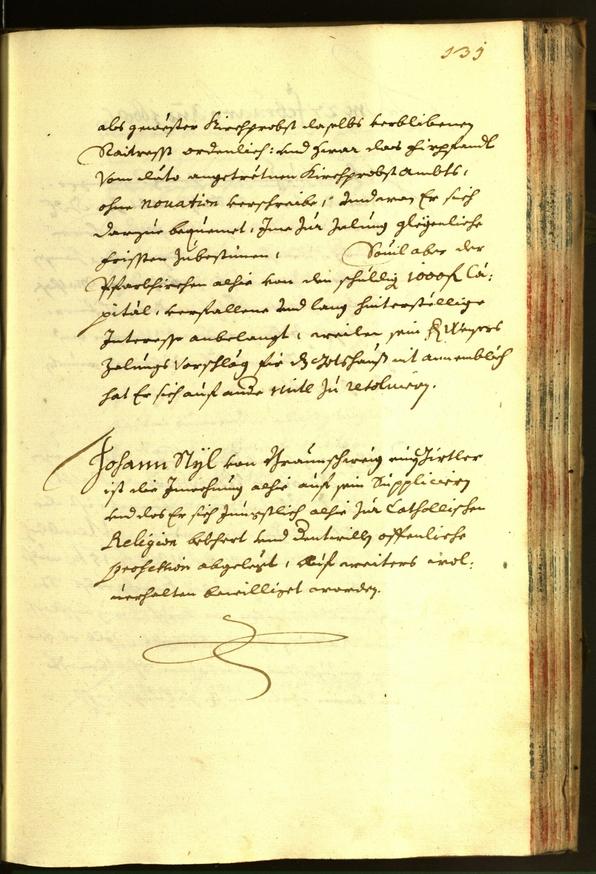 131
als gewester Kirchprobst daselbs verblibenen
Raitrest ordenlich: und zwar das fürpfandt
vom dato angetretnen Kirchprobst Ambts,
ohne novation verschreibe, Inderen Er sich
darzue bequemt, Ime zur zalung glegenliche
fristen zubestimen, Sovil aber der
Pfarrkirchen alhie von den schuldig 1000 f Ca:
pital, verfallene und lang hinterstellige
Interesse anbelangt, weilen sein H. Mayrs
zalungs Vorschlag für dz Gotshauß nit annemblich
hat Er sich auf ande mitl zu resolvieren.
Johann Styl von Braunschweig ein Girtler
ist die Inwohnung alhie auf sein Supplicieren
und das Er sich Jüngstlich alhie zur Catholischen
Religion bekhert und dentwillen offentliche
profession abgelegt, Auf weiters wol:
verhalten bewilliget worden.